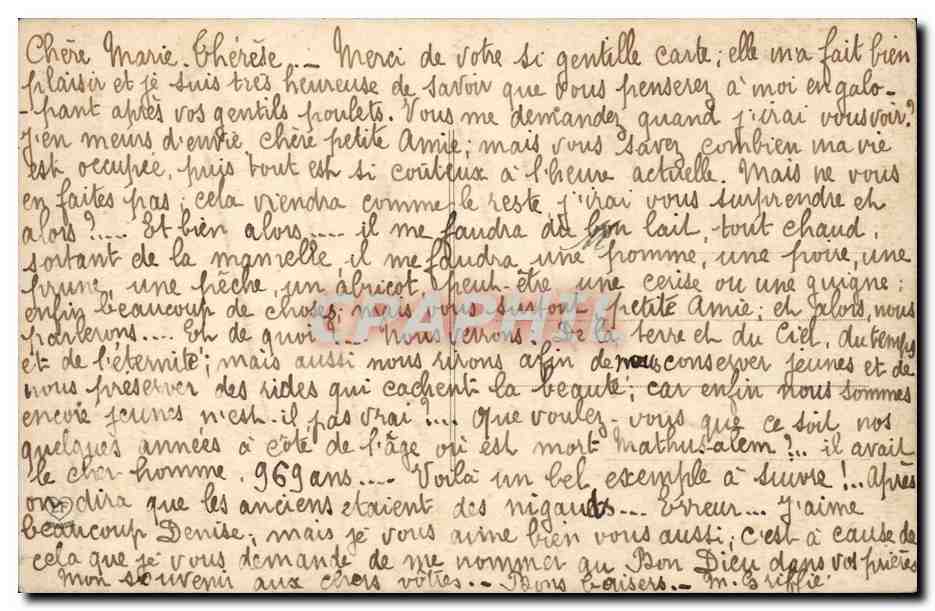 Chère Marie-Thérèse.. — Merci de votre si gentille carte; elle m'a fait bien
plaisir et je suis très heureuse de savoir que vous penserez à moi en galo-
-pant après vos gentils poulets. Vous me demandez quand j'irai vous voir?
J'en meurs d'envie chère petite Amie; mais vous savez combien ma vie
est occupée, puis tout est si coûteux à l'heure actuelle. Mais ne vous
en faites pas; cela viendra comme le reste, j'irai vous surprendre et
alors?.... Et bien alors..... il me faudra du bon lait, tout chaud,
sortant de la mamelle, il me faudra une pomme, une poire, une
prune, une pêche, un abricot, peut-être une cerise ou une guigne;
enfin beaucoup de choses; mais vous surtout petite Amie; et alors, nous
parlerons.... Et de quoi? Nous verrons. De la terre et du Ciel, du temps
et de l'éternité; mais aussi nous rirons afin de nous conserver jeunes et de
nous preserver des rides qui cachent la beauté; car enfin nous sommes
encore jeunes n'est-il pas vrai?... Que voulez-vous que ce soit nos
quelques années à côté de l'âge où est mort Mathusalem?... il avait
le cher homme 969 ans.... Voilà un bel exemple à suivre!... Après
on dira que les anciens etaient des nigauds... Erreur... J'aime
beaucoup Denise; mais je vous aime bien vous aussi; c'est à cause de
cela que je vous demande de me nommer au Bon Dieu dans vos prières
Mon souvenir aux chers vôtres.. Bons baisers.-
CPAPHIL